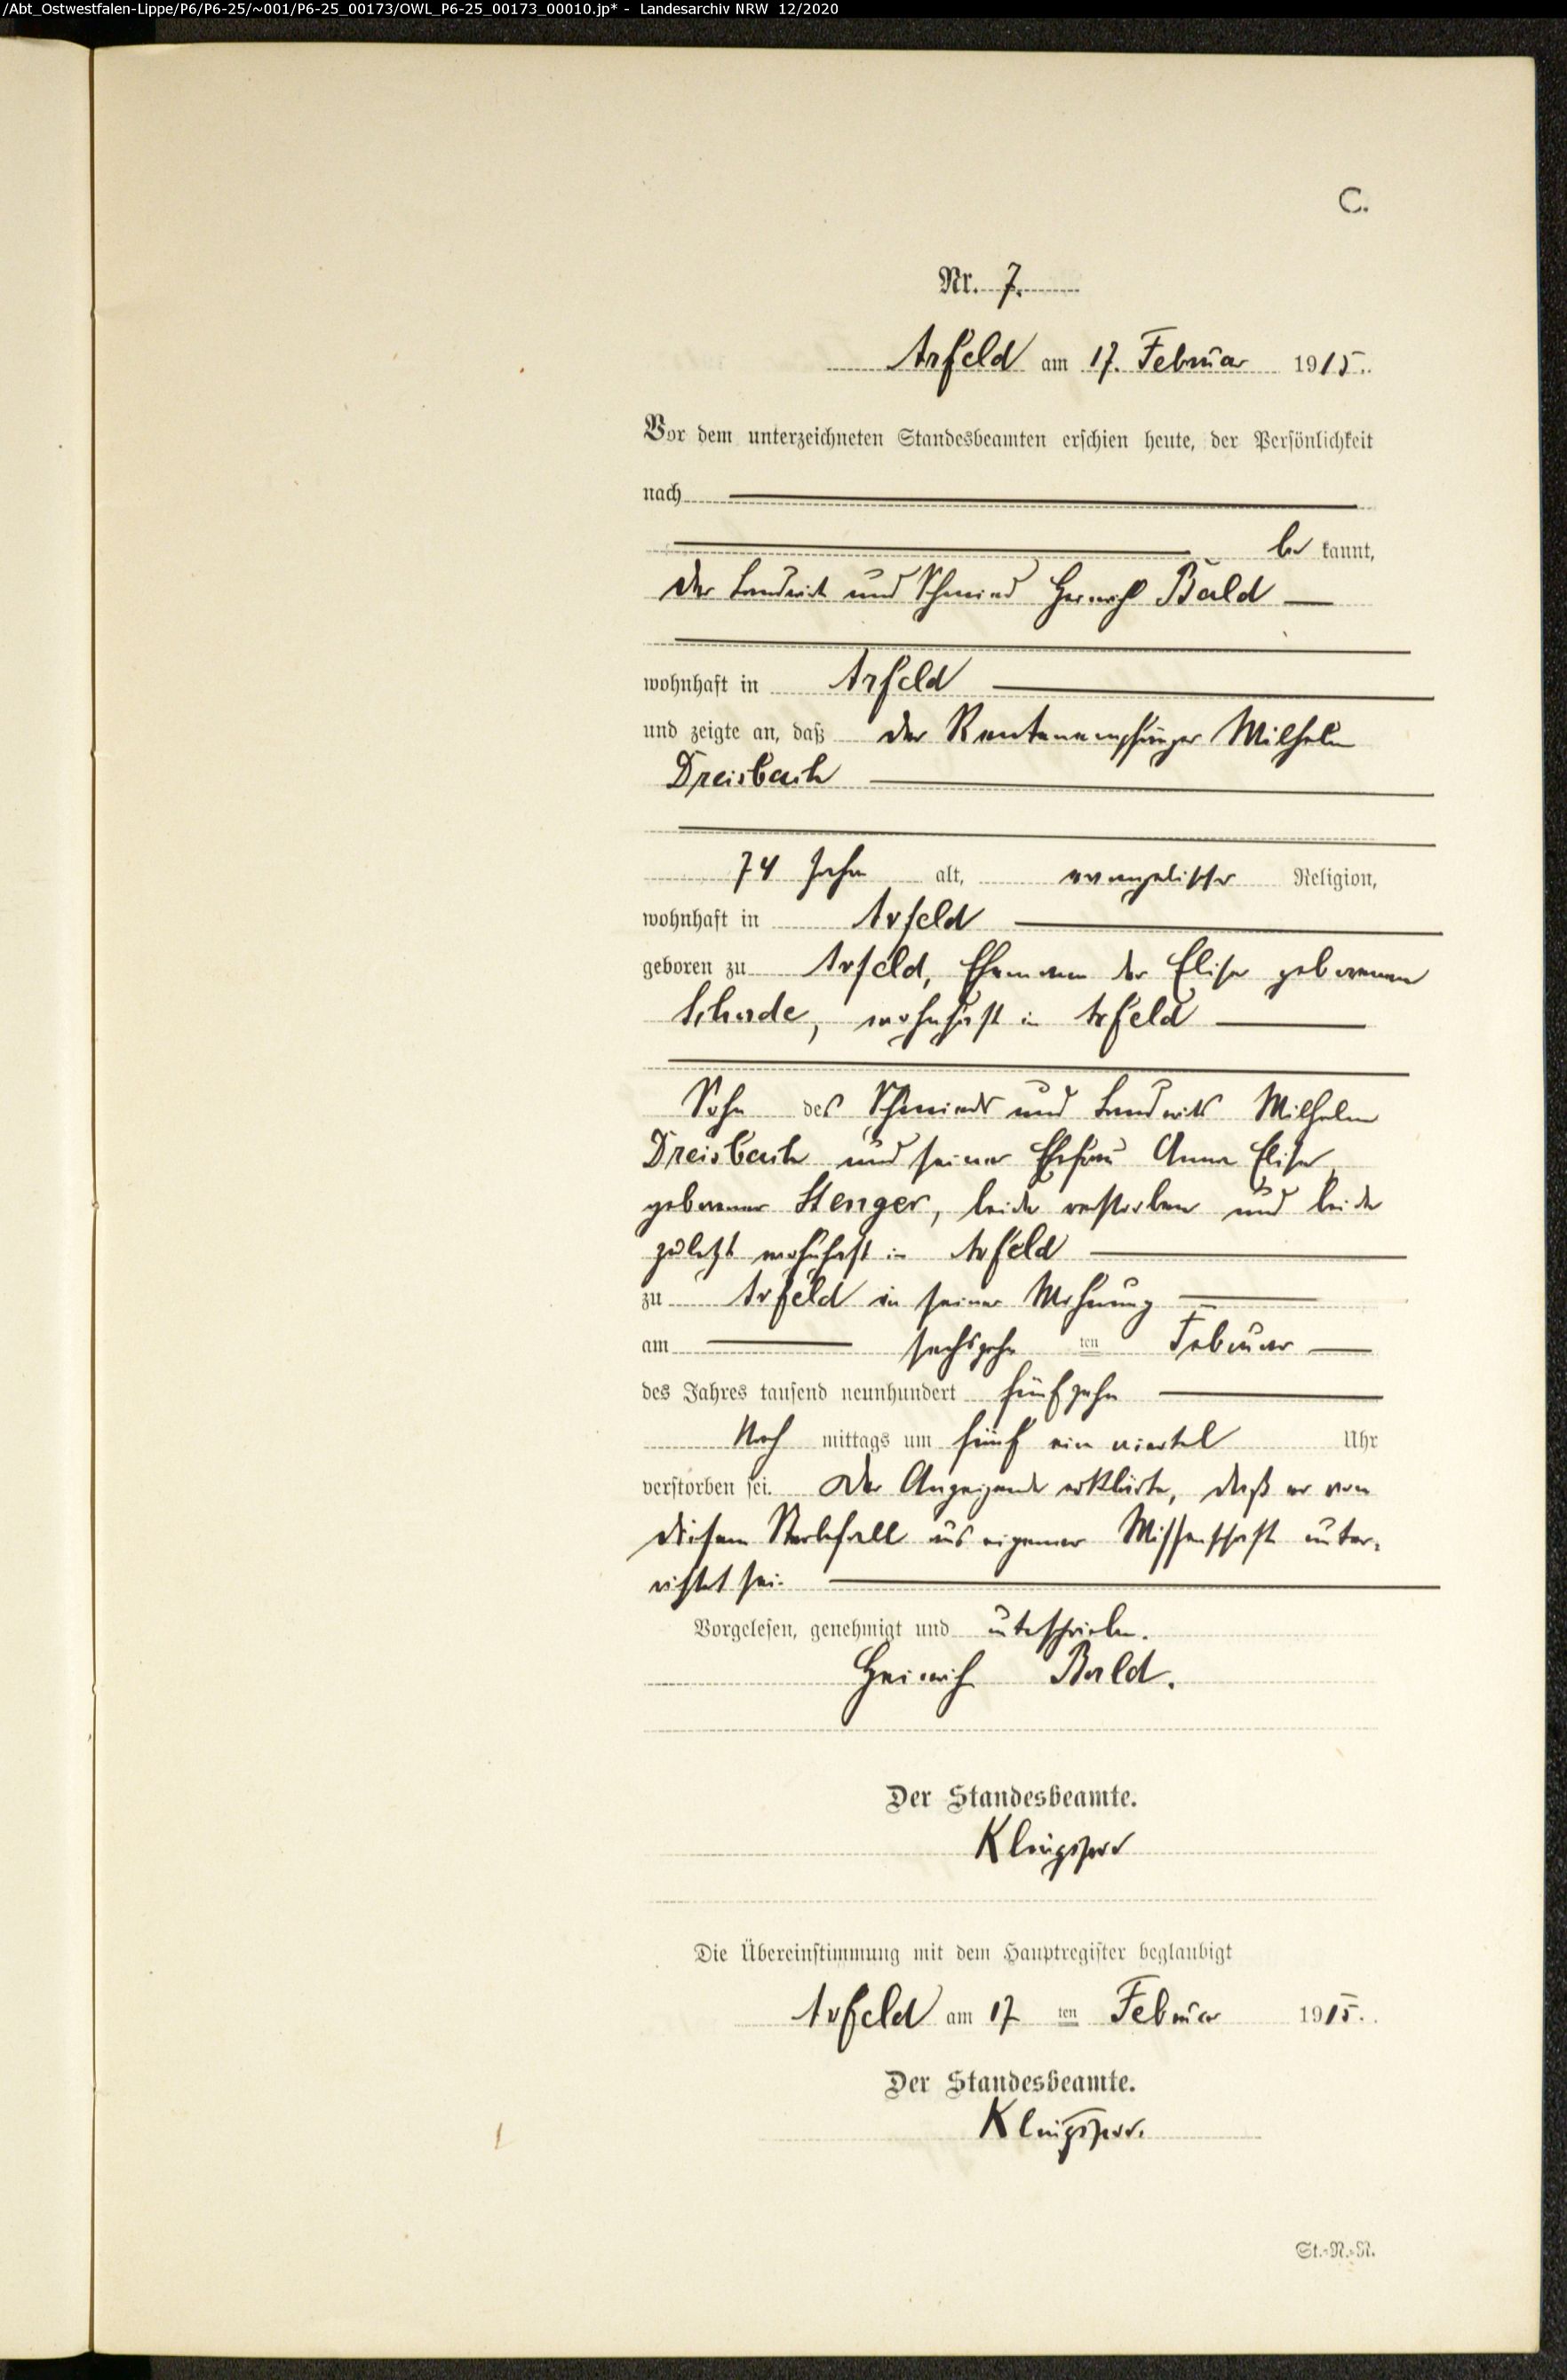 /Abt_Ostwestfalen-Lippe/P6/P6-25/~001/P6-25_00173/OWL_P6-25_00173_00010.jp* - Landesarchiv NRW 12/2020
C.
Nr. 7.
Arfeld am 17. Februar 1915.
Vor dem unterzeichneten Standesbeamten erschien heute, der Persönlichkeit
nach
be kannt,
der Landwirt und Schmied Heinrich Bald
wohnhaft in Arfeld
und zeigte an, daß der Rentenempfänger Wilhelm
Dreisbach
74 Jahre alt, evangelischer Religion,
wohnhaft in Arfeld
geboren zu Arfeld, Ehemann der Elise geborenen
Schade, wohnhaft in Arfeld
Sohn des Schmieds und Landwirts Wilhelm
Dreisbach und seiner Ehefrau Anna Elise,
geborener Stenger, beide verstorben und beide
zuletzt wohnhaft in Arfeld
zu Arfeld in seiner Wohnung
am sechszehn ten Februar
des Jahres tausend neunhundert fünfzehn
Nach mittags um fünf ein viertel Uhr
verstorben sei. Der Anzeigende erklärte, daß er von
diesem Sterbefall aus eigener Wissenschaft unter-
richtet sei.
Vorgelesen, genehmigt und unterschrieben.
Heinrich Bald.
Der Standesbeamte.
Klingspor
Die Übereinstimmung mit dem Hauptregister beglaubigt
Arfeld am 17 ten Februar 1915.
Der Standesbeamte.
Klingspor.
St.-N.-R.